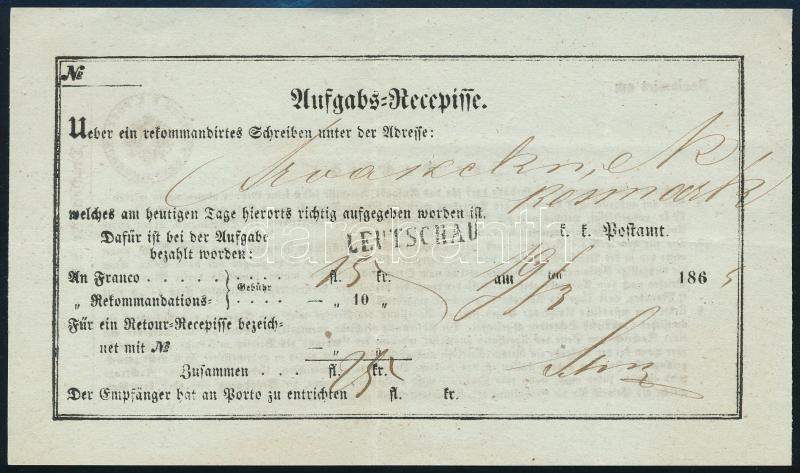 №
Aufgabs-Recepisse.
Ueber ein rekommandirtes Schreiben unter der Adresse:
welches am heutigen Tage hierorts richtig aufgegeben worden ist.
Dafür ist bei der Aufgabe bezahlt worden:
LEUTSCHAU k. k. Postamt.
An Franco . . . . Gebühr . . . . fl. 15 kr. am 19/3 ten 1865
„ Rekommandations- . . . . — „ 10 „
Für ein Retour-Recepisse bezeich-
net mit № — „ „
Zusammen . . . fl. 25 kr.
Der Empfänger hat an Porto zu entrichten fl. kr.
darabanth